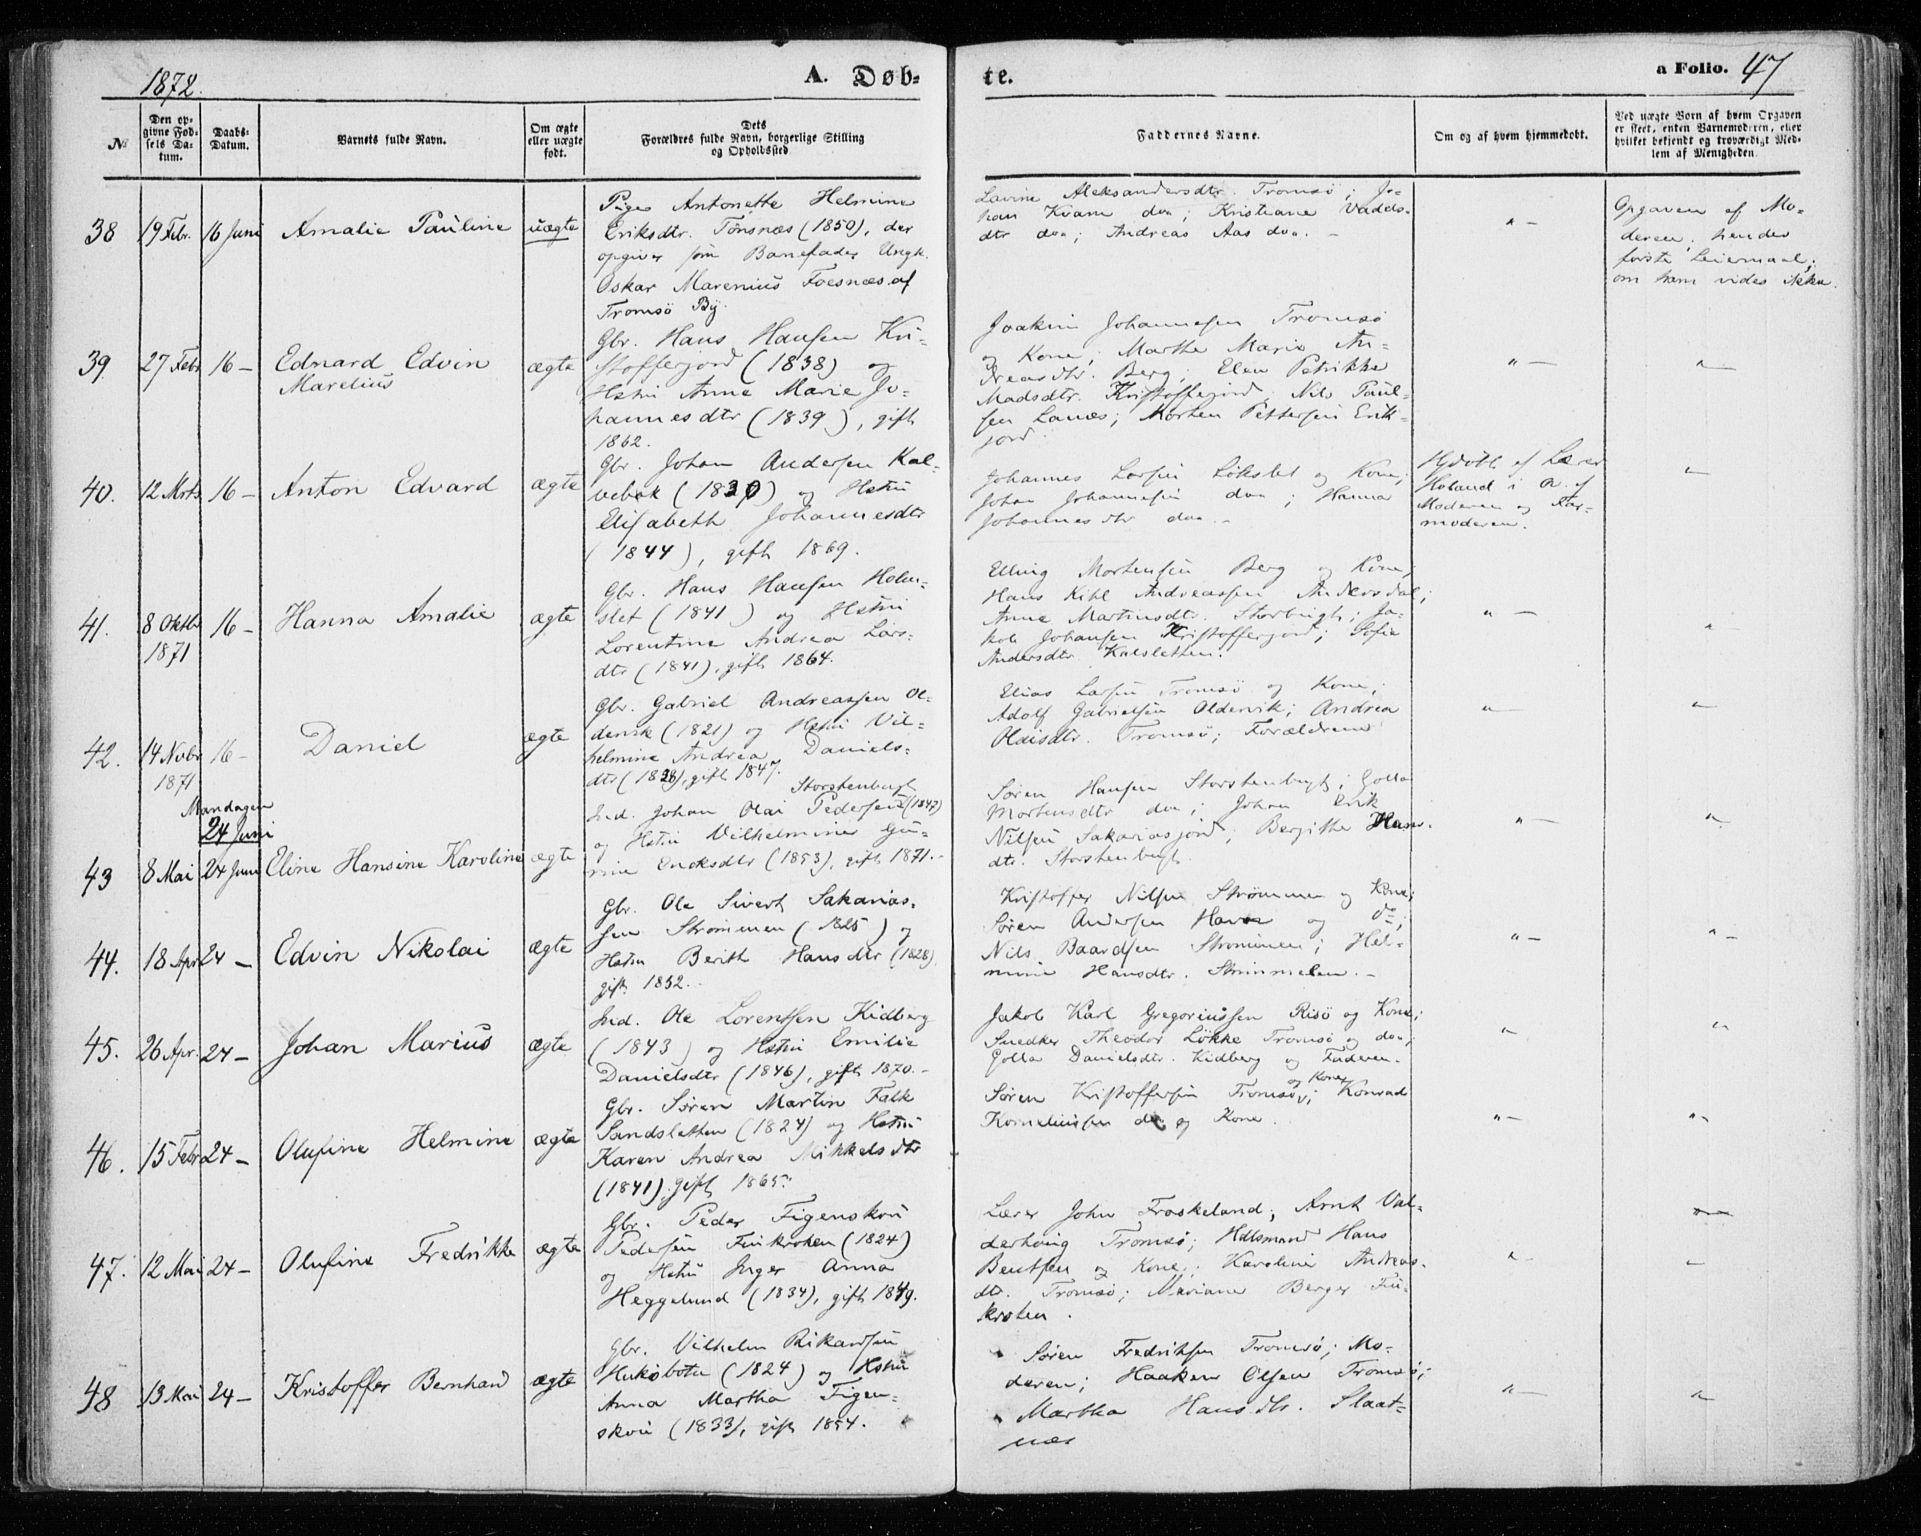 1872.
A. Døb-
te.
a Folio. 47
№
Den op-
givne Fød-
sels Da-
tum.
Daabs-
Datum.
Barnets fulde Navn.
Om ægte
eller uægte
født.
Dets
Forældres fulde Navn, borgerlige Stilling
og Opholdssted
Faddernes Navne.
Om og af hvem hjemmedøbt.
Ved uægte Born af hvem Opgaven
er skeet, enten Barnemoderen, eller
hvilket bekjendt og troværdigt Med-
lem af Menigheden.
38 19 Febr. 16 Juni Amalie Pauline uægte
Pige Antonette Helmine
Eriksdtr. Tönsnæs (1850), der
opgiver som Barnefader Ungk.
Oskar Marenius Foesnæs af
Tromsö By.
Lavine Aleksandersdtr. Tromsö; Jo-
han Kvam doa; Kristiane Vadels-
dtr doa; Andreas Aas doa. -
" -
Opgaven af Mo-
deren; hendes
første Leiermaal;
om ham vides ikke.
39. 27 Febr 16 - Edvard Edvin
Marelius
ægte
Gbr. Hans Hansen Kri-
stofferjord (1838) og
Hstru Anne Marie Jo-
hannesdtr (1839), gift
1862.
Joakim Johannesen Tromsö
og Kone; Marthe Marie An-
dreasdtr. Berg; Elen Petrikke
Madsdtr. Kristofferjord; Nils Paul-
sen Lanæs; Morten Pettersen Erik-
jord.
" -
"
40. 12 Mrts 16 - Anton Edvard ægte
Gbr. Johan Andersen Kal-
vebak (1830) og Hstru
Elisabeth Johannesdtr
(1844), gift 1869.
Johannes Larsen Lökslet og Kone;
Johan Johannesen doa; Hanna
Johannesdtr doa. -
Hjdøbt af Lærer
Høland i O. af
Moderen og Far-
moderen.
"
41. 8 Oktbr 16 - Hanna Amalie ægte
1871
Gbr. Hans Hansen Holm-
slet (1841) og Hstru
Lorentine Andrea Lars-
dtr (1841), gift 1864.
Elling Mortensen Berg og Kone;
Hans Kihl Andreassen Andersdal;
Anne Martinsdtr. Storbugt; Ja-
kob Johansen Kristofferjord; Sofie
Andersdtr. Kalsletten.
" -
"
42. 14 Novbr 16 - Daniel ægte
1871
Gbr. Gabriel Andreassen Ol-
dervik (1821) og Hstru Vil-
helmine Andrea Daniels-
dtr (1828), gift 1847.
Elias Larsen Tromsö og Kone;
Adolf Gabrielsen Oldervik; Andrea
Olaisdtr. Tromsö; Forældrene
" -
"
Mandagen
24 Juni
43 8 Mai 24 Juni Eline Hansine Karoline ægte
Storstenbugt
Ind. Johan Olai Pedersen (1847)
og Hstru Vilhelmine Gu-
rine Enoksdtr (1853), gift 1871. -
Sören Hansen Storstenbugt; Golla
Mortensdtr doa; Johan Erik
Nilsen Sakariasjord; Bergitte Hans-
dtr. Storstenbugt.
" -
"
44. 18 Apr 24 - Edvin Nikolai ægte
Gbr. Ole Sivert Sakarias-
sen Strømmen (1825) og
Hstru Berith Hansdtr (1828),
gift 1852.
Kristoffer Nilsen Strømmen og Kone;
Sören Andersen Havn og do;
Nils Baardsen Strømmen; Hel-
mine Hansdtr. Strimmelen. -
" -
" -
45. 26 Apr. 24 - Johan Marius ægte
Ind. Ole Lorentsen Kidberg
(1843) og Hstru Emilie
Danielsdtr (1846), gift 1870. -
Jakob Karl Gregoriussen Risö og Kone;
Snedker Theodor Løkke Tromsö og doa;
Golla Danielsdtr. Kidberg og Faderen.
" -
"
46. 15 Febr 24 - Olufine Helmine ægte
Gbr. Sören Martin Falk
Sandsletten (1824) og Hstru
Karen Andrea Mikkelsdtr
(1841), gift 1865.
og Kone
Sören Kristoffersen Tromsö; Konrad
Korneliussen do og Kone.
" -
"
47. 12 Mai 24 - Olufine Fredrikke ægte
Gbr. Peder Figenskou
Pedersen Finkroken (1824)
og Hstru Inger Anna
Heggelund (1834), gift 1849.
Lærer John Froskeland; Arnt Val-
derhoug Tromsö; Hdlsmand Hans
Bentsen og Kone; Karoline Andreas-
dtr. Tromsö; Mariane Berger Fin-
kroken.
" -
"
48 13 Mai 24 - Kristoffer Bernhard ægte
Gbr. Vilhelm Rikardsen
Huköbotn (1824) og Hstru
Anna Martha Figen-
skou (1833), gift 1854.
Sören Fredriksen Tromsö; Mo-
deren; Haakon Olsen Tromsö;
Martha Hansdtr. Slaat-
næs
" -
"